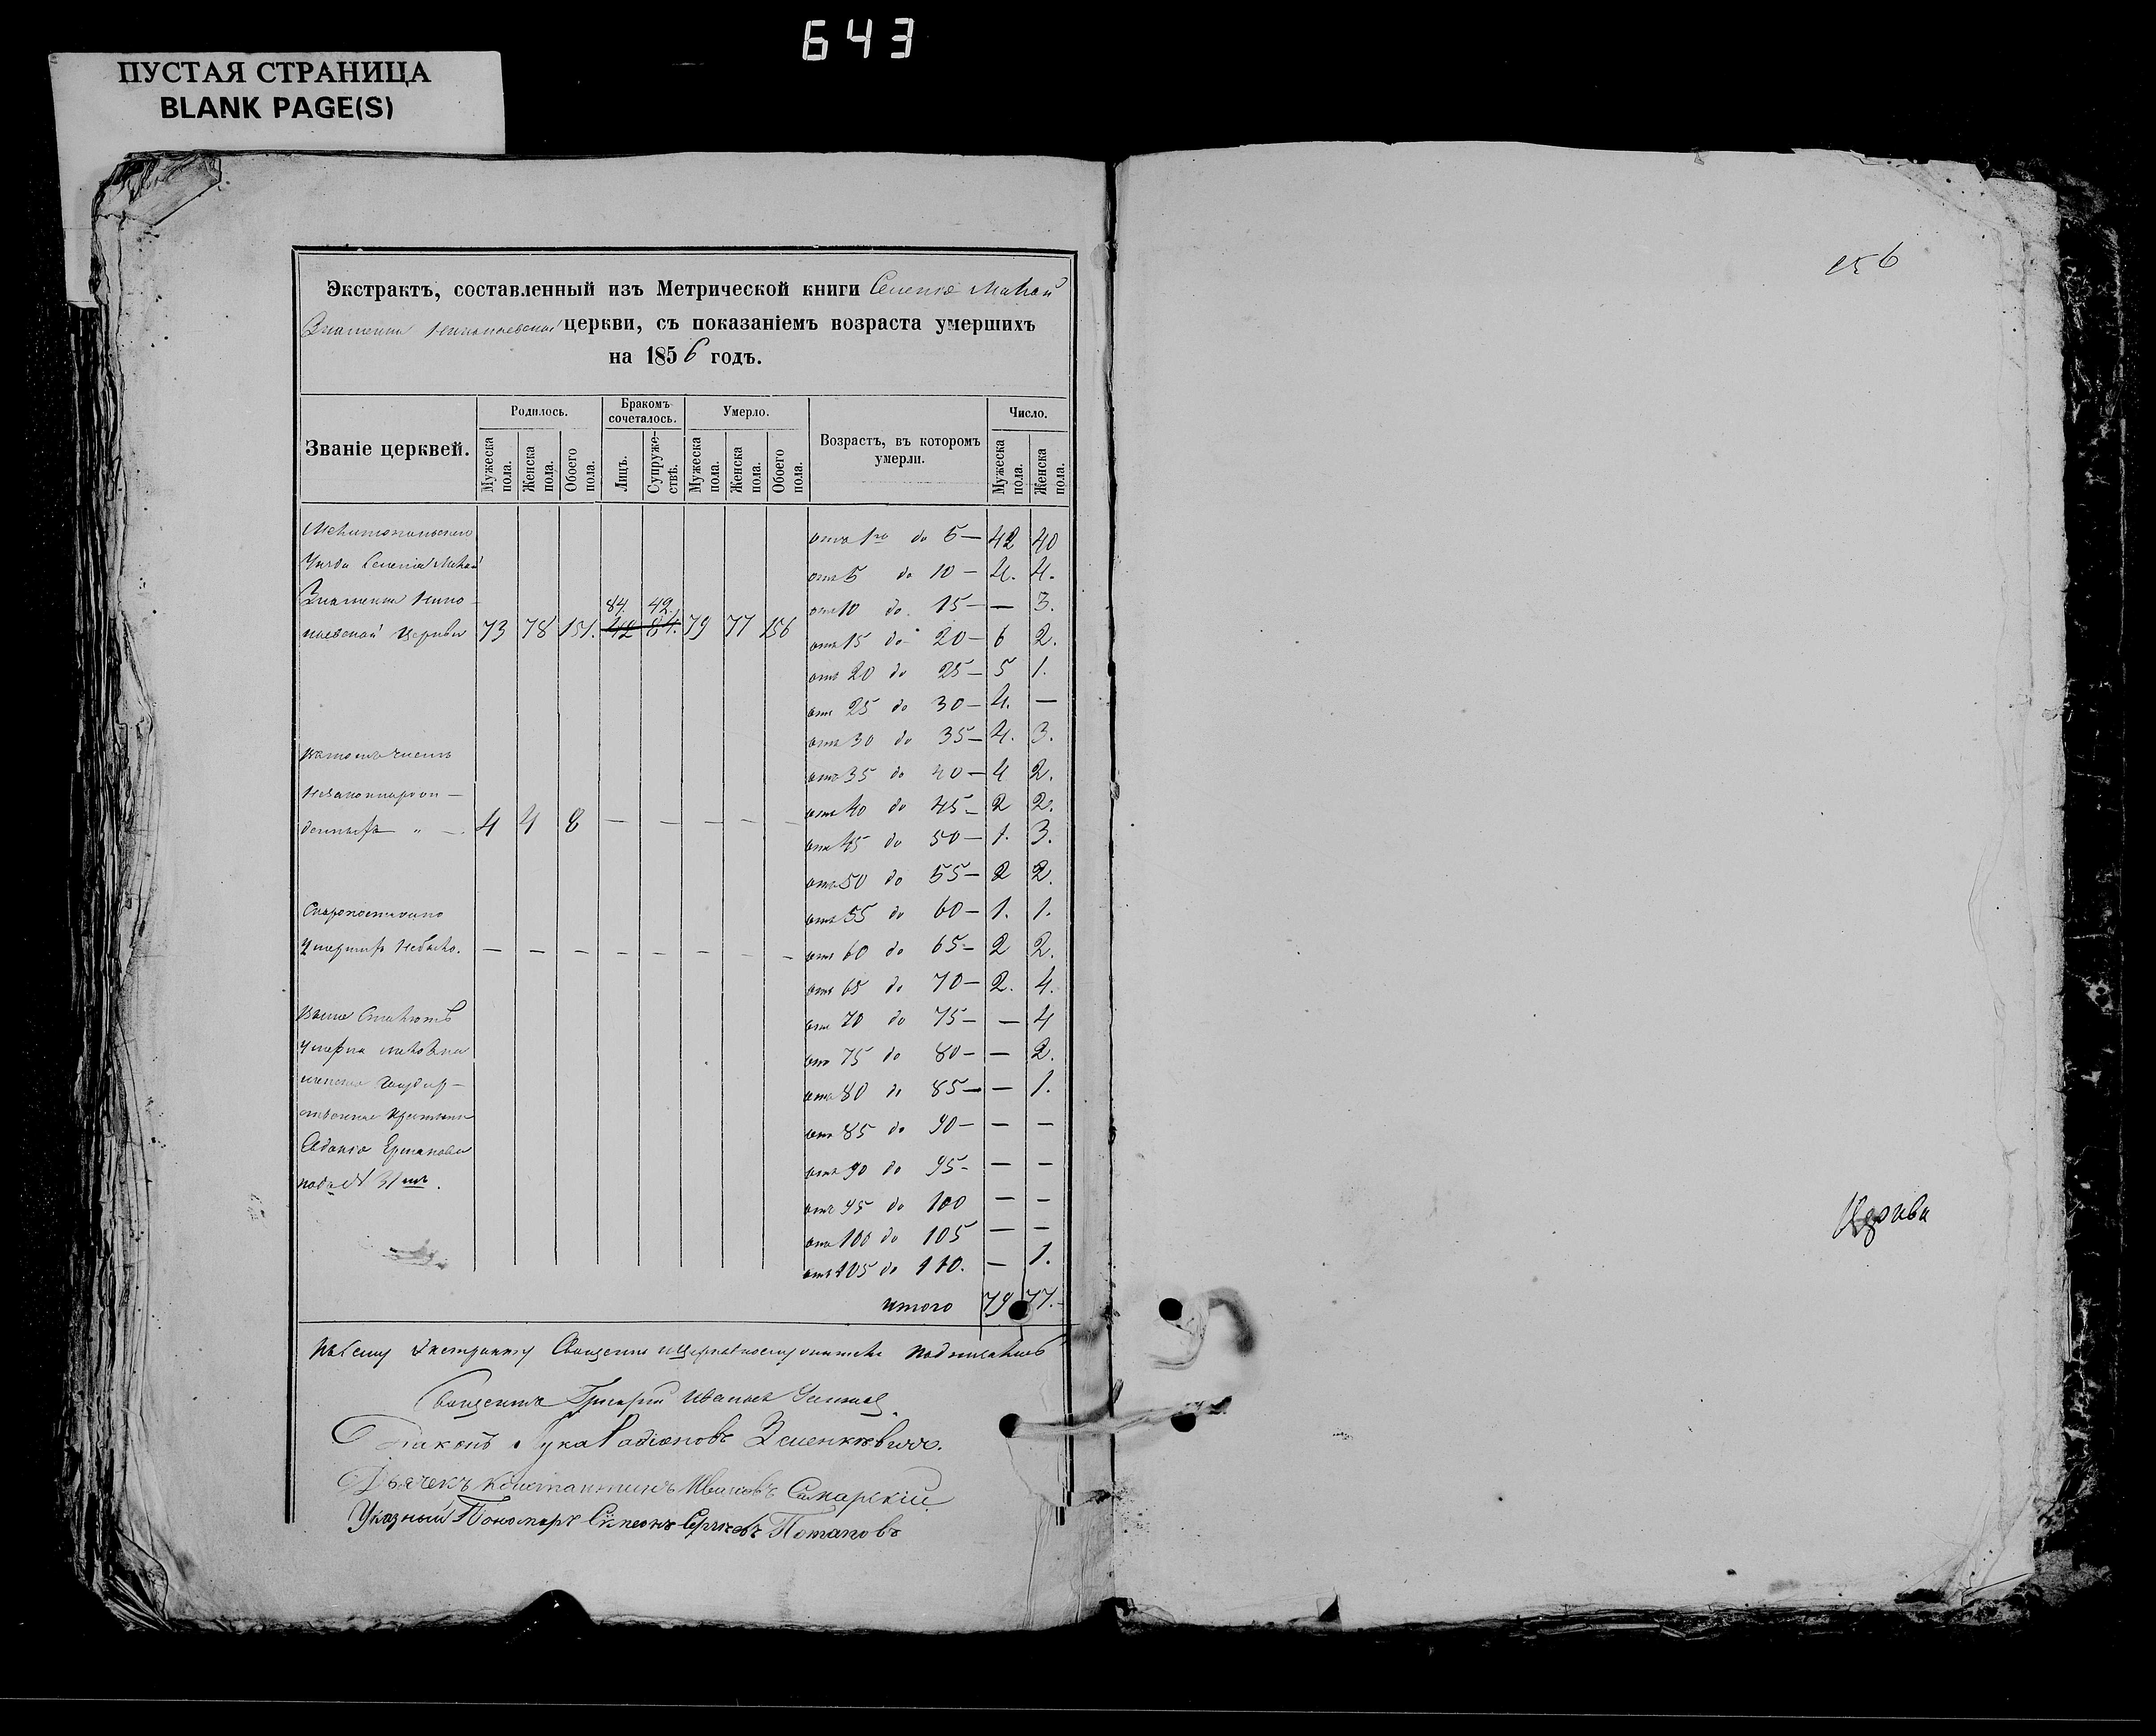 643
ПУСТАЯ СТРАНИЦА
BLANK PAGE(S)
156
Экстрактъ, составленный изъ Метрической книги Селенія Малой
Знаменки Николаевской церкви, съ показаніемъ возраста умершихъ
на 1856 годъ.
Званіе церквей. Родилось. Бракомъ сочеталось. Умерло. Возрастъ, въ которомъ умерли. Число.
Мужеска пола. Женска пола. Обоего пола. Лицъ. Супружествъ. Мужеска пола. Женска пола. Обоего пола. Мужеска пола. Женска пола.
Мелитопольскаго отъ 1го до 5 — 42 40
Уѣзда Селенія Малой отъ 5 до 10 — 4. 4.
Знаменки Нико- 84. 42. отъ 10 до 15 — — 3.
лаевской Церкви 73 78 151. 42 84. 79 77 156 отъ 15 до 20 — 6 2.
отъ 20 до 25 — 5 1.
отъ 25 до 30 — 4. —
отъ 30 до 35 — 4. 3.
Въ томъ числѣ отъ 35 до 40 — 4 2.
Незаконнорож— отъ 40 до 45 — 2 2.
денныхъ " — 4 4 8 — — — — — отъ 45 до 50 — 1. 3.
отъ 50 до 55 — 2 2.
Скоропостижно отъ 55 до 60 — 1. 1.
Умершихъ небыло. — — — — — — — — отъ 60 до 65 — 2 2.
отъ 65 до 70 — 2. 4.
Выше Ста лѣтъ отъ 70 до 75 — — 4
Умерла отъ 75 до 80 — — 2.
отъ 80 до 85 — — 1.
отъ 85 до 90 — — —
отъ 90 до 95 — — —
отъ 95 до 100 — —
отъ 100 до 105 — —
отъ 105 до 110. — 1.
итого 79 77.
Къ сему Экстракту Священно и церковнослужители подписались
Священникъ Григорій Ивановъ
Діаконъ Лука Радіоновъ Зеленкевичъ.
Дьячекъ Константинъ Ивановъ Самарскій
Указный Пономарь Симеонъ Сергѣевъ Потаповъ
Церкви